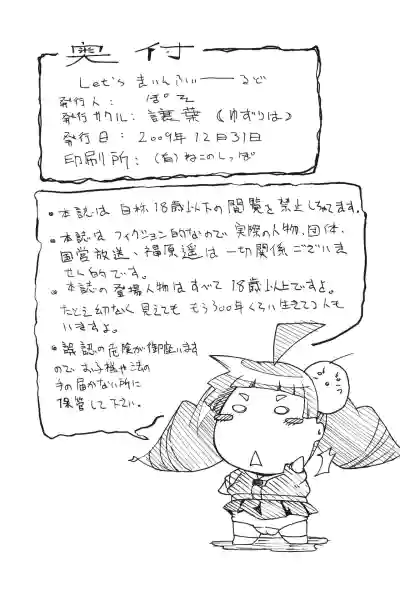 奥付
Let's まいんふぃーーるど
発行人: ぽそ
発行サークル: 譲葉(ゆずりは)
発行日: 2009年12月31日
印刷所: (有)ねこのしっぽ
•本誌は自称18歳以下の閲覧を禁止しちゃてます。
•本誌はフィクション的なので実際の人物、団体、
国営放送、福原遥は一切関係ございま
せん的です。
•本誌の登場人物はすべて18歳以上ですよ。
たとえ幼なく見えてももう300年くらい生きてつんも
いますよ。
•誤認の危険が御座います
のでお子様や法の
手の届かない所に
保管して下さい。